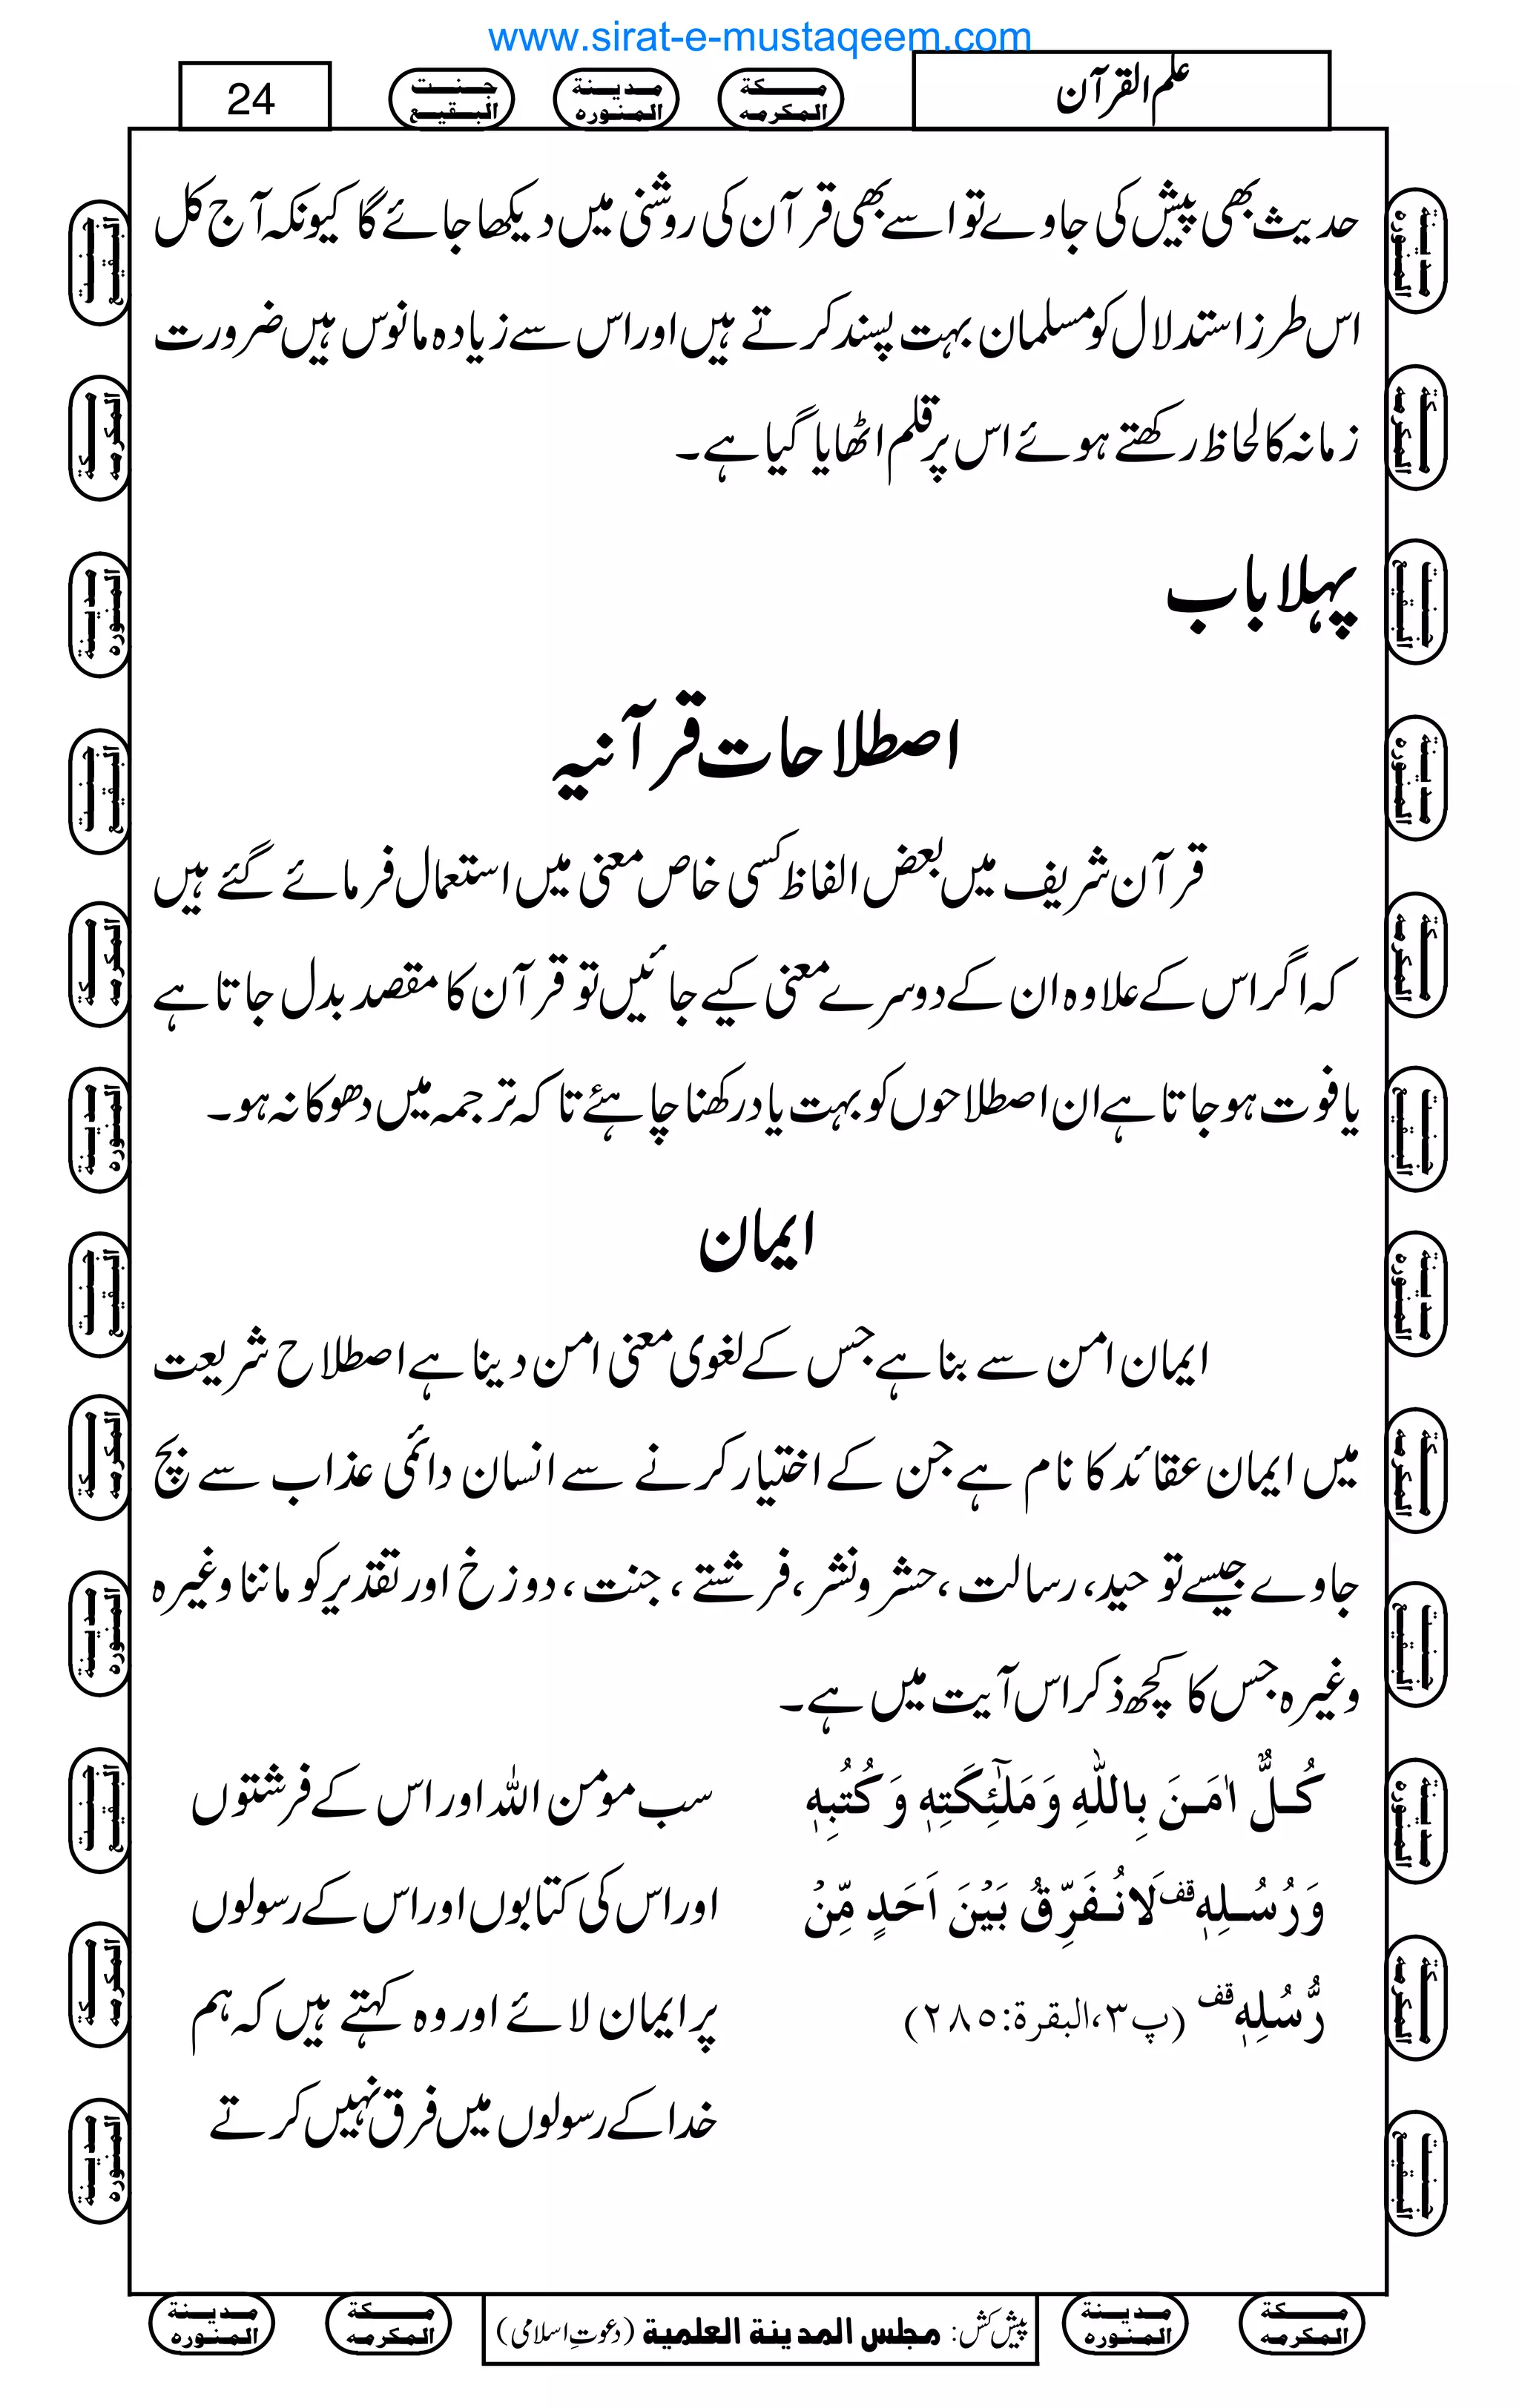 www.sirat-e-mustaqeem.com
علم القرآن
مکة المکرمه
مدینة المنوره
جنت البقیع
24
حدیث بھی پیش کی جاوے تو اسے بھی قرآن کی روشنی میں دیکھا جائے گا کیونکہ آج کل
اس طرز استدلال کو مسلمان بہت پسند کرتے ہیں اور اس سے زیادہ مانوس ہیں ضرورت
زمانہ کا لحاظ رکھتے ہوئے اس پر قلم اٹھایا گیا ہے۔
پہلا باب
اصطلاحات قرآنیہ
قرآن شریف میں بعض الفاظ کسی خاص معنی میں استعمال فرمائے گئے ہیں
کہ اگر اس کے علاوہ ان کے دوسرے معنی کیے جائیں تو قرآن کا مقصد بدل جاتا ہے
یا فوت ہوجاتا ہے ان اصطلاحوں کو بہت یاد رکھنا چاہئے تاکہ ترجمہ میں دھوکا نہ ہو۔
ایمان
ایمان امن سے بنا ہے جس کے لغوی معنی امن دینا ہے اصطلاح شریعت
میں ایمان عقائد کا نام ہے جن کے اختیار کرنے سے انسان دائمی عذاب سے بچ
جاوے جیسے توحید، رسالت، حشر و نشر، فرشتے، جنت، دوزخ اور تقدیر کو ماننا وغیرہ
وغیرہ جس کا کچھ ذکر اس آیت میں ہے۔
كُلٌّ اٰمَنَ بِاللّٰهِ وَمَلٰٓئِكَتِهٖ وَكُتُبِهٖ
وَرُسُلِهٖ قف لَانُفَرِّقُ بَيْنَ اَحَدٍ مِّنْ
رُّسُلِهٖ قف (پ۳،البقرة:۲۸۵)
سب مومن اللہ اور اس کے فرشتوں
اور اس کی کتابوں اور اس کے رسولوں
پر ایمان لائے اور وہ کہتے ہیں کہ ہم
خدا کے رسولوں میں فرق نہیں کرتے
مکة المکرمه
مدینة المنوره
پیش کش: مجلس المدینة العلمیة (دعوتِ اسلامی)
مکة المکرمه
مدینة المنوره